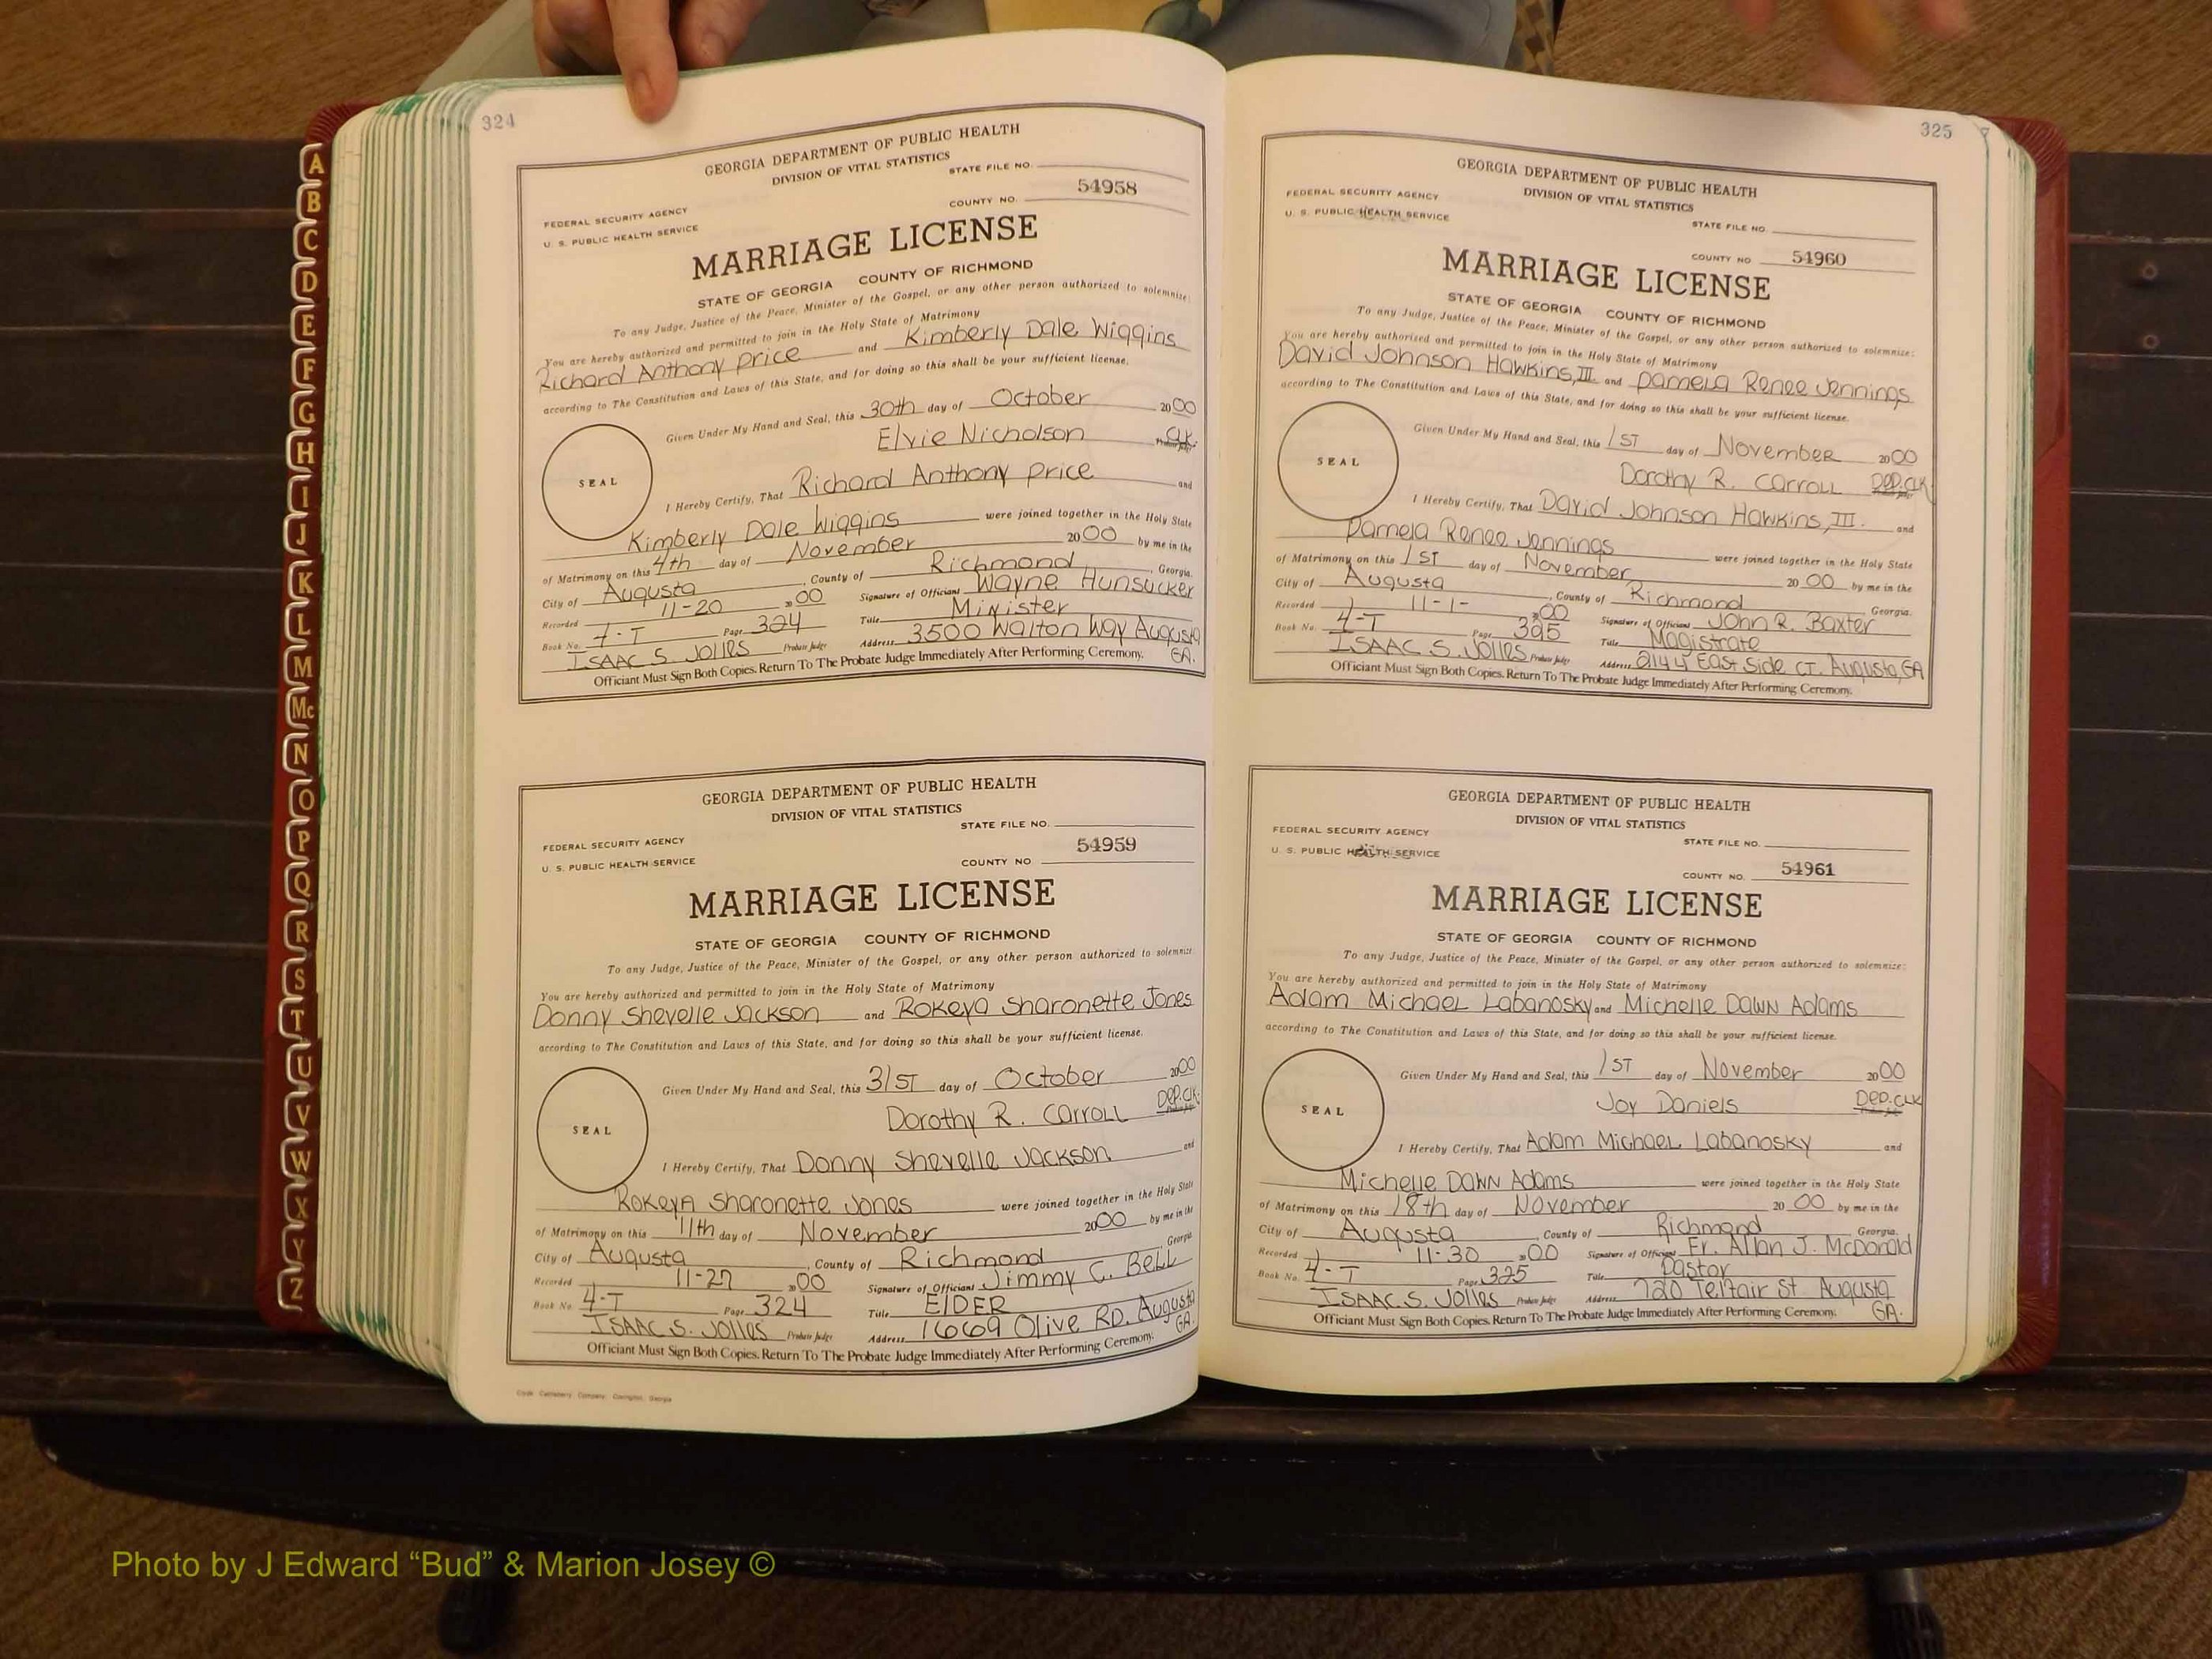 A
B
C
D
E
F
G
H
I
J
K
L
M
Mc
N
O
P
Q
R
S
T
U
V
W
X
Y
Z
324
GEORGIA DEPARTMENT OF PUBLIC HEALTH
DIVISION OF VITAL STATISTICS
STATE FILE NO.
54958
FEDERAL SECURITY AGENCY
COUNTY NO.
U. S. PUBLIC HEALTH SERVICE
MARRIAGE LICENSE
STATE OF GEORGIA COUNTY OF RICHMOND
To any Judge, Justice of the Peace, Minister of the Gospel, or any other person authorized to solemnize:
You are hereby authorized and permitted to join in the Holy State of Matrimony
Richard Anthony Price and Kimberly Dale Wiggins
according to The Constitution and Laws of this State, and for doing so this shall be your sufficient license.
Given Under My Hand and Seal, this 30th day of October 2000
Elvie Nicholson CLK.
SEAL
I Hereby Certify, That Richard Anthony Price and
Kimberly Dale Wiggins were joined together in the Holy State
of Matrimony on this 4th day of November 2000 by me in the
City of Augusta, County of Richmond, Georgia.
Recorded 11-20 00 Signature of Officiant Wayne Hunsucker
Book No. 4-T Page 324 Title Minister
ISAAC S. JOlles Probate Judge Address 3500 Walton Way Augusta GA.
Officiant Must Sign Both Copies. Return To The Probate Judge Immediately After Performing Ceremony.
GEORGIA DEPARTMENT OF PUBLIC HEALTH
DIVISION OF VITAL STATISTICS
STATE FILE NO.
54959
FEDERAL SECURITY AGENCY
COUNTY NO.
U. S. PUBLIC HEALTH SERVICE
MARRIAGE LICENSE
STATE OF GEORGIA COUNTY OF RICHMOND
To any Judge, Justice of the Peace, Minister of the Gospel, or any other person authorized to solemnize:
You are hereby authorized and permitted to join in the Holy State of Matrimony
Donny Shevelle Jackson and Rokeya Sharonette Jones
according to The Constitution and Laws of this State, and for doing so this shall be your sufficient license.
Given Under My Hand and Seal, this 31ST day of October 2000
Dorothy R. Carroll Dep.Clk.
SEAL
I Hereby Certify, That Donny Shevelle Jackson and
Rokeya Sharonette Jones were joined together in the Holy State
of Matrimony on this 11th day of November 2000 by me in the
City of Augusta, County of Richmond Georgia.
Recorded 11-27 00 Signature of Officiant Jimmy C. Bell
Book No. 4-T Page 324 Title ElDER
ISAAC S. JOlles Probate Judge Address 1669 Olive RD. Augusta GA.
Officiant Must Sign Both Copies. Return To The Probate Judge Immediately After Performing Ceremony.
325
GEORGIA DEPARTMENT OF PUBLIC HEALTH
DIVISION OF VITAL STATISTICS
FEDERAL SECURITY AGENCY
U. S. PUBLIC HEALTH SERVICE
STATE FILE NO.
COUNTY NO 54960
MARRIAGE LICENSE
STATE OF GEORGIA COUNTY OF RICHMOND
To any Judge, Justice of the Peace, Minister of the Gospel, or any other person authorized to solemnize:
You are hereby authorized and permitted to join in the Holy State of Matrimony
David Johnson Hawkins, III and Pamela Renee Jennings
according to The Constitution and Laws of this State, and for doing so this shall be your sufficient license.
Given Under My Hand and Seal, this 1ST day of November 2000
Dorothy R. Carroll Dep.Clk.
SEAL
I Hereby Certify, That David Johnson Hawkins, III. and
Pamela Renee Jennings were joined together in the Holy State
of Matrimony on this 1ST day of November 2000 by me in the
City of Augusta, County of Richmond Georgia.
Recorded 11-1- 00 Signature of Officiant John R. Baxter
Book No. 4-T Page 325 Title Magistrate
ISAAC S. JOlles Probate Judge Address 2144 East Side CT. Augusta, GA
Officiant Must Sign Both Copies. Return To The Probate Judge Immediately After Performing Ceremony.
GEORGIA DEPARTMENT OF PUBLIC HEALTH
DIVISION OF VITAL STATISTICS
FEDERAL SECURITY AGENCY
STATE FILE NO.
U. S. PUBLIC HEALTH SERVICE
COUNTY NO. 54961
MARRIAGE LICENSE
STATE OF GEORGIA COUNTY OF RICHMOND
To any Judge, Justice of the Peace, Minister of the Gospel, or any other person authorized to solemnize:
You are hereby authorized and permitted to join in the Holy State of Matrimony
Adam Michael Labanosky and Michelle Dawn Adams
according to The Constitution and Laws of this State, and for doing so this shall be your sufficient license.
Given Under My Hand and Seal, this 1ST day of November 2000
Joy Daniels Dep.Clk
SEAL
I Hereby Certify, That Adam Michael Labanosky and
Michelle Dawn Adams were joined together in the Holy State
of Matrimony on this 18th day of November 2000 by me in the
City of Augusta, County of Richmond Georgia.
Recorded 11-30 00 Signature of Officiant Fr. Allan J. McDonald
Book No. 4-T Page 325 Title Pastor
ISAAC S. JOlles Probate Judge Address 720 Telfair St. Augusta GA.
Officiant Must Sign Both Copies. Return To The Probate Judge Immediately After Performing Ceremony.
Photo by J Edward “Bud” & Marion Josey ©